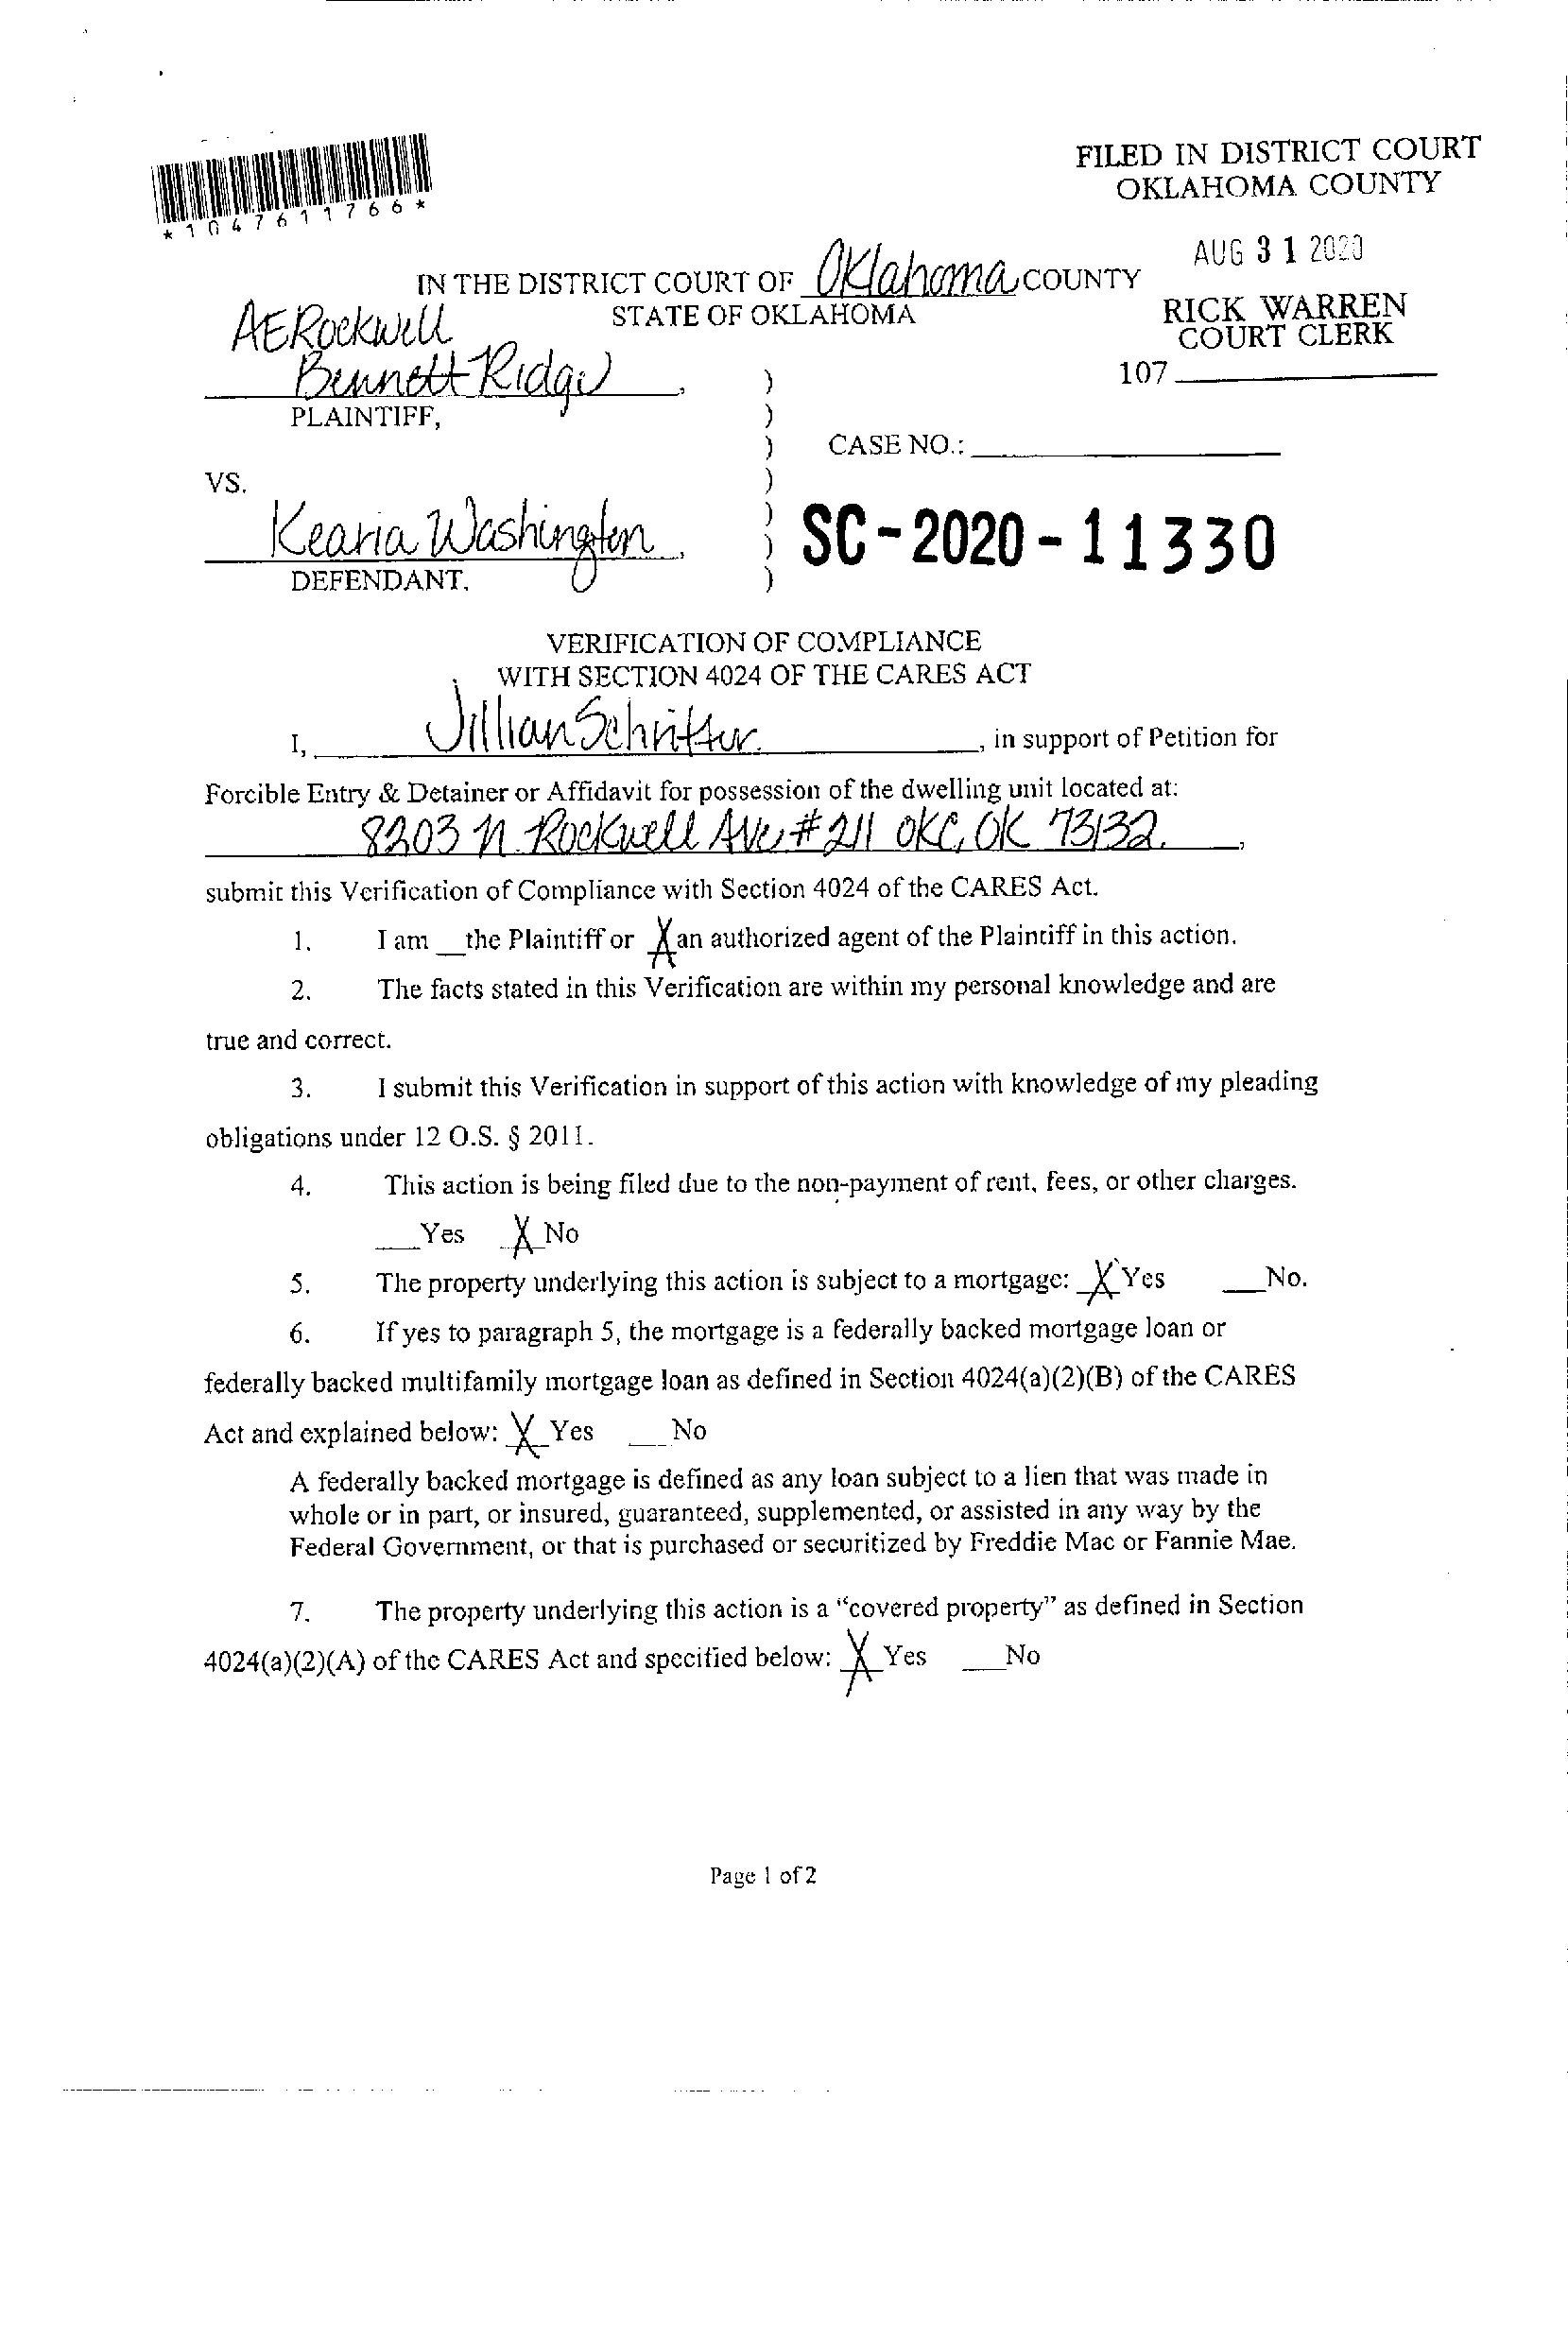 FILED IN DISTRICT COURT
OKLAHOMA COUNTY
*1047611766*
AUG 31 2020
IN THE DISTRICT COURT OF Oklahoma COUNTY
STATE OF OKLAHOMA
RICK WARREN
COURT CLERK
107
AERockwell
Bennett Ridge,
PLAINTIFF,
)
)
)
)
)
)
)
CASE NO.:
VS.
Kearia Washington,
SC-2020-11330
DEFENDANT.
VERIFICATION OF COMPLIANCE
WITH SECTION 4024 OF THE CARES ACT
I, Jillian Schritter, in support of Petition for
Forcible Entry & Detainer or Affidavit for possession of the dwelling unit located at:
8203 N. Rockwell Ave #211 OKC, OK 73132,
submit this Verification of Compliance with Section 4024 of the CARES Act.
1. I am __the Plaintiff or X an authorized agent of the Plaintiff in this action.
2. The facts stated in this Verification are within my personal knowledge and are
true and correct.
3. I submit this Verification in support of this action with knowledge of my pleading
obligations under 12 O.S. § 2011.
4. This action is being filed due to the non-payment of rent, fees, or other charges.
___Yes X No
5. The property underlying this action is subject to a mortgage: X Yes ___No.
6. If yes to paragraph 5, the mortgage is a federally backed mortgage loan or
federally backed multifamily mortgage loan as defined in Section 4024(a)(2)(B) of the CARES
Act and explained below: X Yes ___No
A federally backed mortgage is defined as any loan subject to a lien that was made in
whole or in part, or insured, guaranteed, supplemented, or assisted in any way by the
Federal Government, or that is purchased or securitized by Freddie Mac or Fannie Mae.
7. The property underlying this action is a "covered property" as defined in Section
4024(a)(2)(A) of the CARES Act and specified below: X Yes ___No
Page 1 of 2